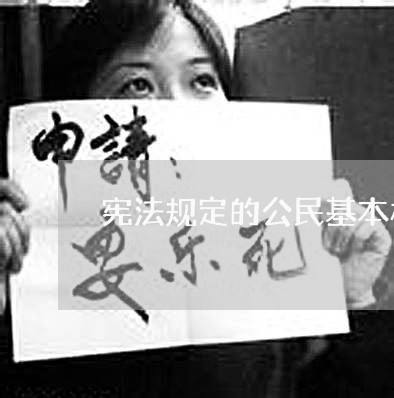 申請:
宪法规定的公民基本
安乐死